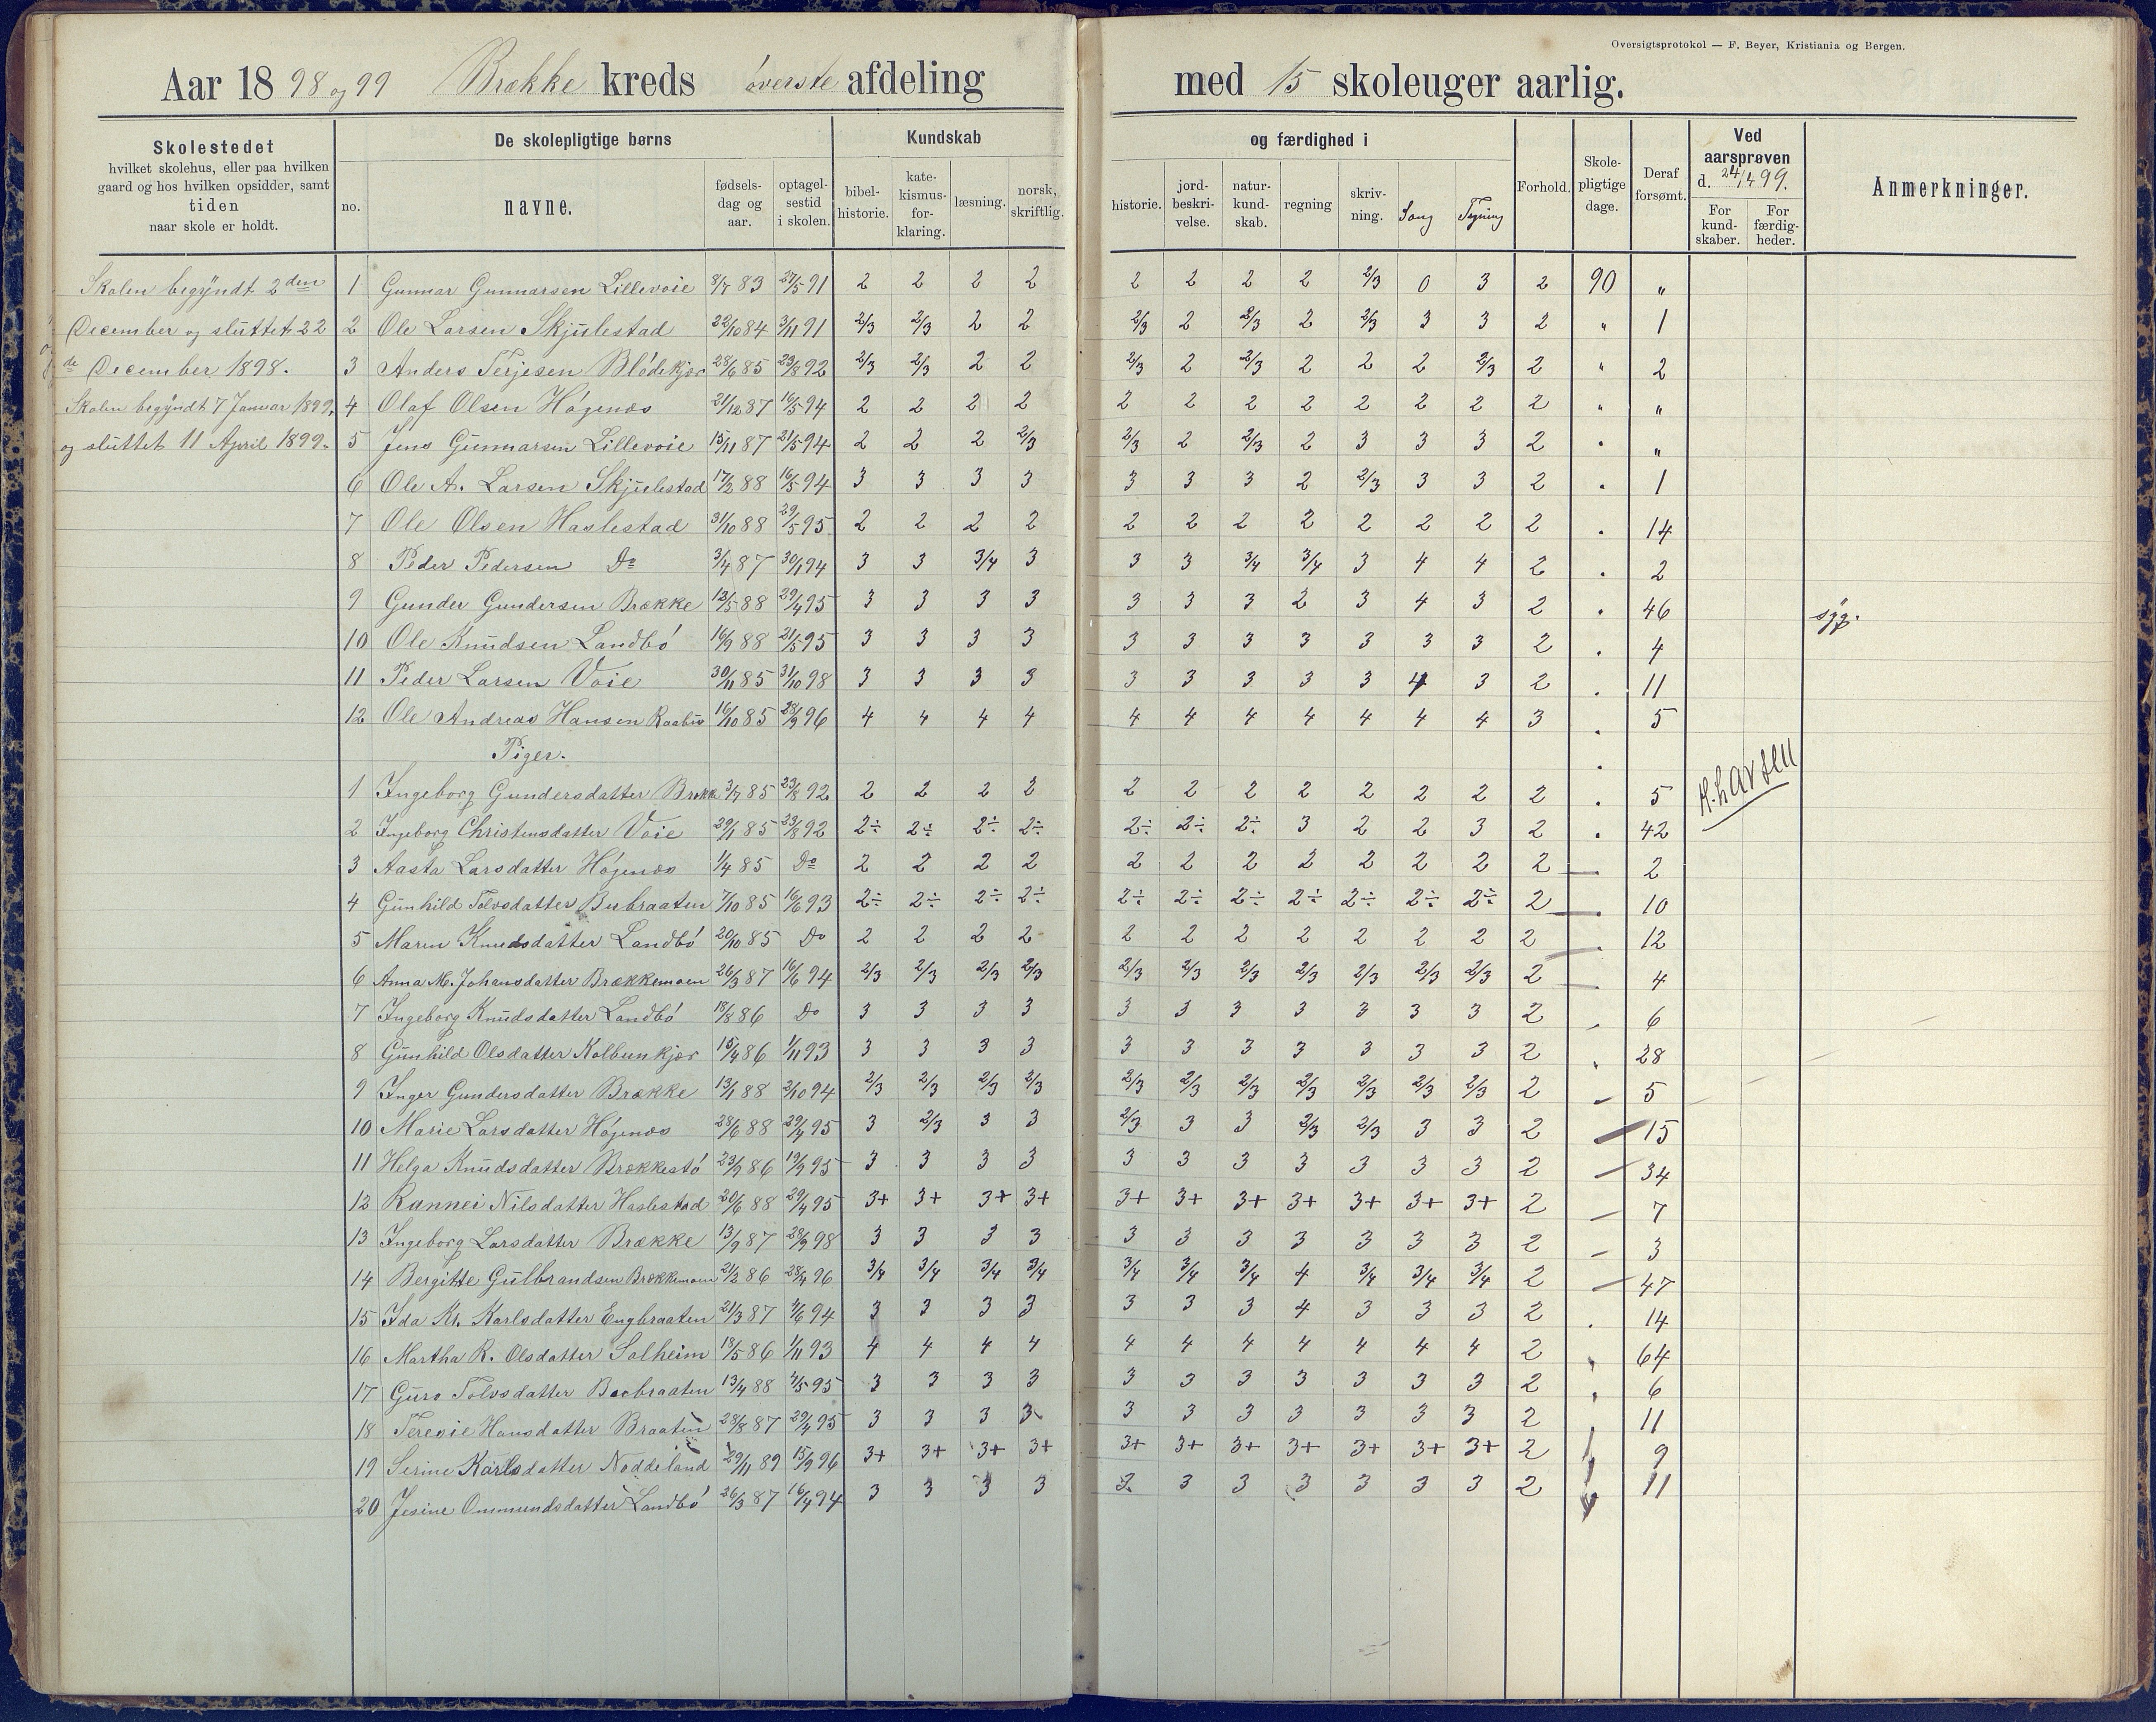 Oversigtsprotokol — F. Beyer, Kristiania og Bergen.
Aar 1898 og 99 Brække kreds øverste afdeling med 15 skoleuger aarlig.
Skolestedet hvilket skolehus, eller paa hvilken gaard og hos hvilken opsidder, samt tiden naar skole er holdt.
De skolepligtige børns
no. navne. fødselsdag og aar. optagelsestid i skolen.
Kundskab og færdighed i
bibelhistorie. katekismusforklaring. læsning. norsk, skriftlig. historie. jordbeskrivelse. naturkundskab. regning skrivning. Sang Tegning
Forhold. Skolepligtige dage. Deraf forsømt.
Ved aarsprøven d. 24/4 99.
For kundskaber. For færdigheder.
Anmerkninger.
Skolen begyndt 2den
December og sluttet 22
de December 1898.
Skolen begyndt 7 Januar 1899,
og sluttet 11 April 1899.
1 Gunnar Gunnarsen Lillevoie 8/7 83 27/5 91 2 2 2 2 2 2 2 2 2/3 0 3 2 90 "
2 Ole Larsen Skjulestad 22/10 84 3/11 91 2/3 2/3 2 2 2/3 2 2/3 2 2/3 3 3 2 " 1
3 Anders Terjesen Blödekjær 28/6 85 23/8 92 2/3 2/3 2 2 2/3 2 2/3 2 2 2 2/3 2 " 2
4 Olaf Olsen Högenæs 21/12 87 16/5 94 2 2 2 2 2 2 2 2 2 2 2 2 " "
5 Jens Gunnarsen Lillevoie 15/11 87 21/5 94 2 2 2 2/3 2/3 2 2/3 2 3 3 3 2 " "
6 Ole A. Larsen Skjulestad 17/2 88 16/5 94 3 3 3 3 3 3 3 2 2/3 3 3 2 " 1
7 Ole Olsen Haslestad 31/10 88 29/5 95 2 2 2 2 2 2 2 2 2 2 2 2 " 14
8 Peder Pedersen Do 3/4 87 30/1 94 3 3 3/4 3 3 3 3/4 3/4 3 4 4 2 " 2
9 Gunder Gundersen Brække 12/5 88 29/4 95 3 3 3 3 3 3 3 2 3 4 3 2 " 46 syg.
10 Ole Knudsen Landbö 16/9 88 21/5 95 3 3 3 3 3 3 3 3 3 3 3 2 " 4
11 Peder Larsen Voie 30/11 85 31/10 98 3 3 3 3 3 3 3 3 3 4 3 2 " 11
12 Ole Andreas Hansen 16/10 85 28/9 96 4 4 4 4 4 4 4 4 4 4 4 3 " 5
Piger.
1 Ingeborg Gundersdatter Brække 3/7 85 23/8 92 2 2 2 2 2 2 2 2 2 2 2 2 " 5
H. Larsen
2 Ingeborg Christensdatter Voie 29/1 85 23/8 92 2÷ 2÷ 2÷ 2÷ 2÷ 2÷ 2÷ 3 2 2 3 2 " 42
3 Aasta Larsdatter Högenæs 1/4 85 Do 2 2 2 2 2 2 2 2 2 2 2 2 2
4 Gunhild Tolvsdatter Bubraaten 7/10 85 16/6 93 2÷ 2÷ 2÷ 2÷ 2÷ 2÷ 2÷ 2÷ 2÷ 2÷ 2÷ 2 10
5 Maren Knudsdatter Landbö 20/10 85 Do 2 2 2 2 2 2 2 2 2 2 2 2 12
6 Anna M. Johansdatter Brækkemoen 26/3 87 16/6 94 2/3 2/3 2/3 2/3 2/3 2/3 2/3 2/3 2/3 2/3 2/3 2 4
7 Ingeborg Knudsdatter Landbö 18/8 86 Do 3 3 3 3 3 3 3 3 3 3 3 2 6
8 Gunhild Olsdatter Kolbunkjær 15/4 86 1/11 93 3 3 3 3 3 3 3 3 3 3 3 2 28
9 Inger Gundersdatter Brække 13/1 88 2/10 94 2/3 2/3 2/3 2/3 2/3 2/3 2/3 2/3 2/3 2/3 2/3 2 5
10 Marie Larsdatter Högenæs 28/6 88 29/4 95 3 2/3 3 3 2/3 3 3 2/3 2/3 3 3 2 15
11 Helga Knudsdatter Brækkestö 23/9 86 19/9 95 3 3 3 3 3 3 3 3 3 3 3 2 34
12 Rannei Nilsdatter Haslestad 20/6 88 29/4 95 3+ 3+ 3+ 3+ 3+ 3+ 3+ 3+ 3+ 3+ 3+ 2 7
13 Ingeborg Larsdatter Brække 13/9 87 28/9 98 3 3 3 3 3 3 3 3 3 3 3 2 3
14 Bergitte Gulbrandsen Brækkemoen 21/2 86 28/4 96 3/4 3/4 3/4 3/4 3/4 3/4 3/4 4 3/4 3/4 3/4 2 47
15 Ida Kr. Karlsdatter Engbraaten 21/3 87 4/6 94 3 3 3 3 3 3 3 4 3 3 3 2 14
16 Martha R. Olsdatter Solheim 18/5 86 1/11 93 4 4 4 4 4 4 4 4 4 4 4 2 64
17 Guro Tolvsdatter Boobraaten 13/4 88 4/5 95 3 3 3 3 3 3 3 3 3 3 3 2 6
18 Teresie Hansdatter Braaten 28/8 87 29/4 95 3 3 3 3 3 3 3 3 3 3 3 2 11
19 Serine Karlsdatter Noddeland 29/11 89 15/9 96 3+ 3+ 3+ 3+ 3+ 3+ 3+ 3+ 3+ 3+ 3+ 2 9
20 Jesine Ommundsdatter Landbö 26/3 87 16/4 94 3 3 3 3 3 3 3 3 3 3 3 2 11